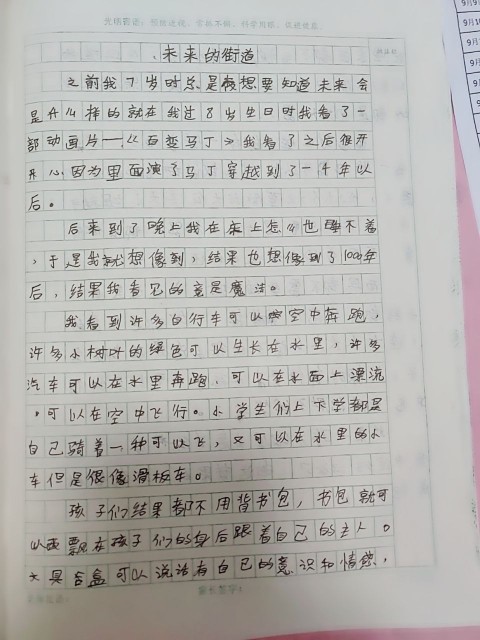 未来的街道
之前我7岁时总是很想要知道未来会
是什么样的就在我过8岁生日时我看了一
部动画片——《百变马丁》我看了之后很开
开心因为里面演了马丁穿越到了一千年以
后。
后来到了晚上我在床上怎么也睡不着
，于是我就想像到，结果也想像到了1000年
后，结果我看见的竟是魔法。
我看到许多自行车可以在空中奔跑，
许多小树叶的绿色可以生长在水里，许多
汽车可以在水里奔跑，可以在水面上漂流
，可以在空中飞行。小学生们上下学都是
自己骑着一种可以飞，又可以在水里的小
车但是很像滑板车。
孩子们结果都不用背书包，书包就可
以飘在孩子们的身后跟着自己的主人。
文具盒可以说话有自己的意识和情绪，